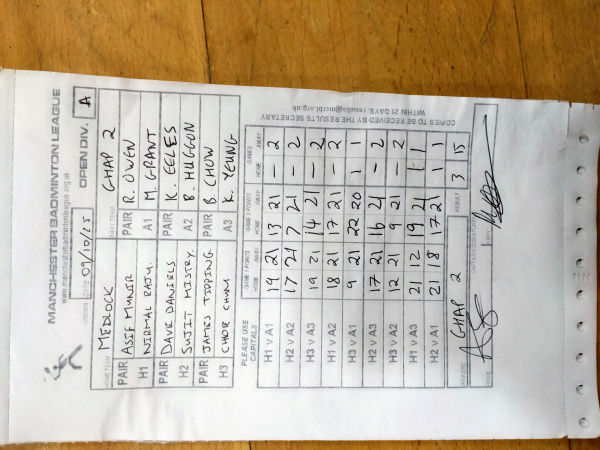 MANCHESTER BADMINTON LEAGUE
www.manchesterbadmintonleague.org.uk
DATE 09/10/25 OPEN DIV. A
HOME TEAM MEDLOCK AWAY TEAM CHAP 2
PAIR ASIF MUNIR PAIR R. OWEN
H1 NIRMAL RAJU. A1 M. GRANT
PAIR DAVE DANIELS PAIR K. EELES
H2 SUJIT MISTRY. A2 B. HUGGON
PAIR JAMES TIPPING PAIR B. CHOW
H3 A3 K. YEUNG
PLEASE USE CAPITALS GAME 1 POINTS HOME AWAY GAME 2 POINTS HOME AWAY GAMES HOME AWAY
H1 v A1 19 21 13 21 – 2
H2 v A2 17 21 7 21 – 2
H3 v A3 19 21 14 21 – 2
H1 v A2 18 21 17 21 – 2
H3 v A1 9 21 22 20 1 1
H2 v A3 17 21 16 21 – 2
H3 v A2 12 21 9 21 – 2
H1 v A3 21 12 19 21 1 1
H2 v A1 21 18 17 21 1 1
CHAP 2 RESULT 3 15
COPIES TO BE RECEIVED BY THE RESULTS SECRETARY
WITHIN 21 DAYS. results@mcrbl.org.uk